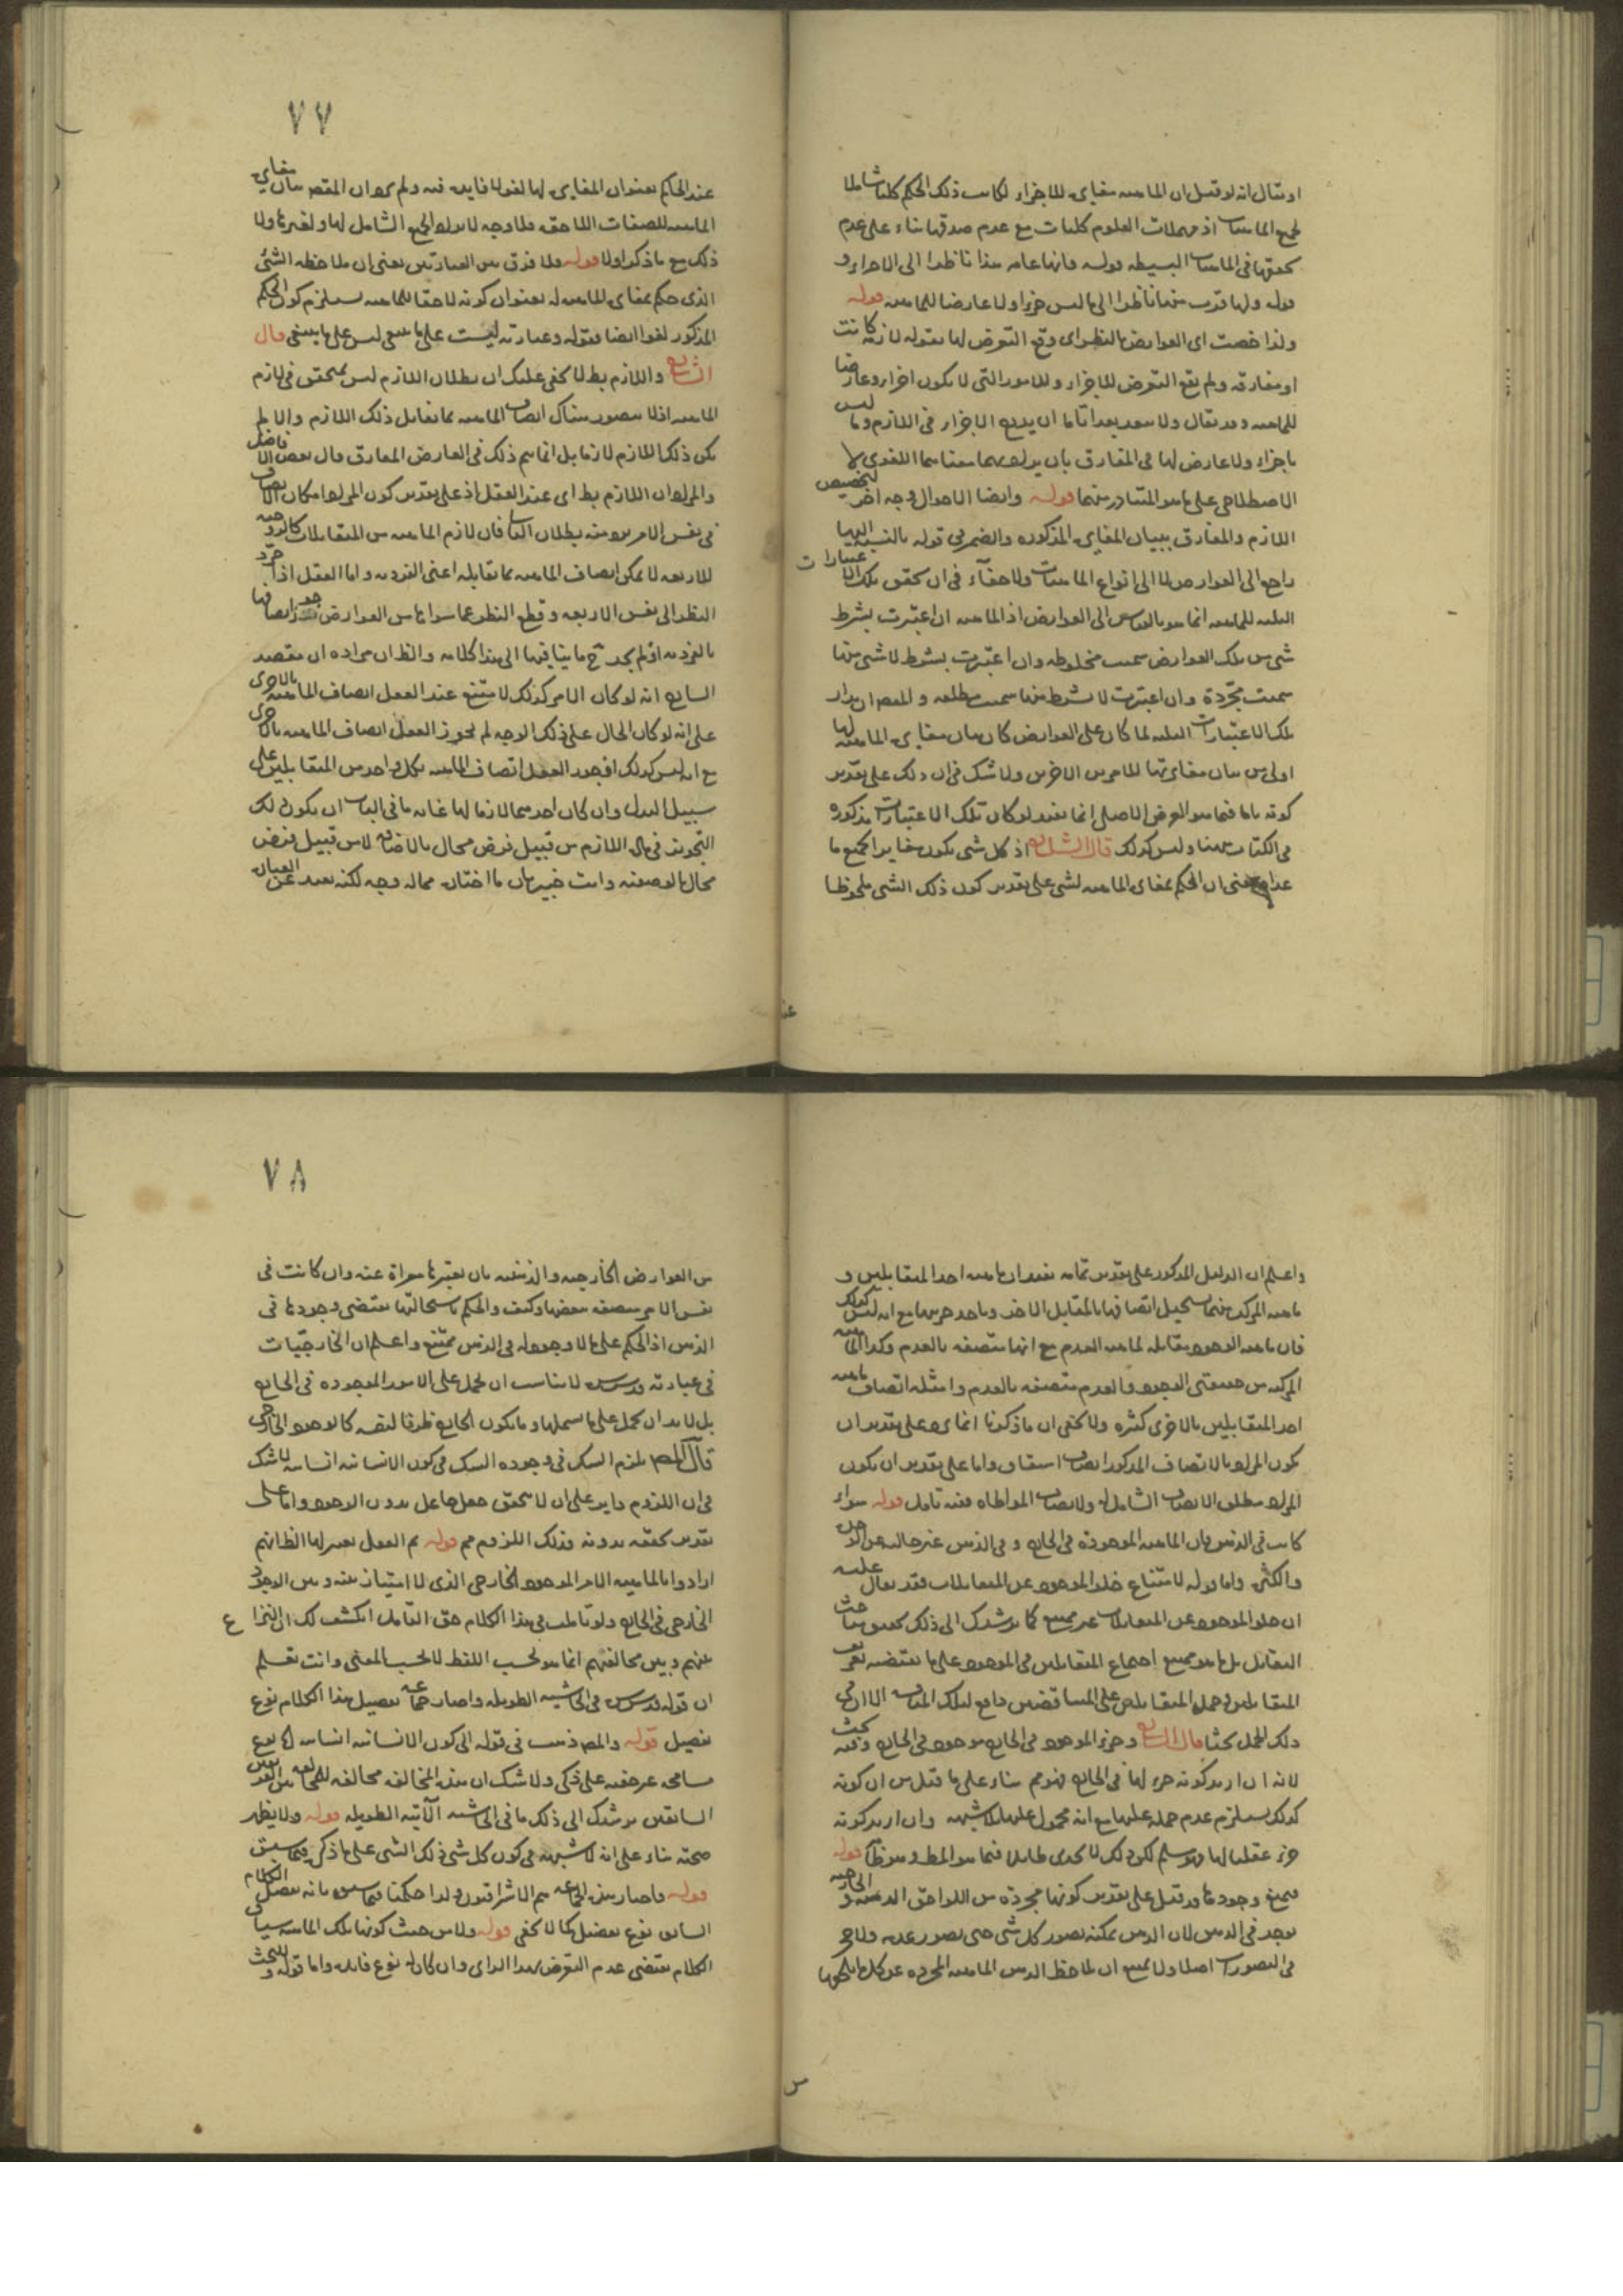 او يقال انه لو قيل ان الماهيه مغايره للاجزاء لكانت ذلك الحكم كليا شاملا
لجميع الماهيات اذ مهملات العلوم كليات مع عدم صدقها بناء على عدم
تحققها في الماهيات البسيطه قوله فانها عامه هذا ناظر الى الاجزاء و
قوله ولها قدرت منها ناظر الى ما ليس جزءا ولا عارضا للماهيه قوله
ولذا خصت اى العوارض بالنظر اى وقع التعرض لها بقوله لازمه كانت
او مفارقه ولم يقع التعرض للاجزاء وللامور التى لا يكون اجزاء وعارضا
للماهيه وقد يقال ولا يبعد بعدا تاما ان يدرج الاجزاء فى اللازم وما ليس
باجزاء ولا عارض لها فى المفارق بان يراد بهما معناهما اللغوى لا
الاصطلاحى على ما هو المتبادر منهما قوله وايضا الاحوال وجه اخر لتخصيص
اللازم والمفارق ببيان المغايره المذكوره والضمير فى قوله بالنسبه اليها
راجع الى العوارض لا الى انواع الماهيات ولا خفاء فى ان تحقق تلك الاعتبارات
الثلثه للماهيه انما هو بالقياس الى العوارض اذ الماهيه ان اعتبرت بشرط
شى من تلك العوارض سميت مخلوطه وان اعتبرت بشرط لا شى منها
سميت مجردة وان اعتبرت لا بشرط منها سميت مطلقه و المقصد ان مدار
تلك الاعتبارات الثلثه لما كان على العوارض كان بيان مغايره الماهيه لها
اولى من بيان مغايرتها للامرين الاخرين ولا شك فى ان ذلك على تقدير
كونه تاما فيما هو الغرض الاصلى انما يفيد لو كان تلك الاعتبارات مذكوره
فى الكتاب ههنا وليس كذلك قال الشارح اذ كل شى يكون مغايرا لجميع ما
عداه يعنى ان الحكم بمغايره الماهيه لشى على تقدير كون ذلك الشى ملحوظا
٧٧
عند الحاكم بعنوان المغايره لها لغو لا فايده فيه ولم يرد ان المقصد بيان مغايره
الماهيه للصفات اللاحقه فلا وجه لايراد الحكم الشامل لها ولغيرها ولا
ذلك مع ما ذكر اولا قوله ولا فرق بين العبارتين يعنى ان ملاحظه الشئ
الذى حكم بمغايره الماهيه له بعنوان كونه لاحقا للماهيه يستلزم كون الحكم
المذكور لغوا ايضا فقوله وعبارته ليست على ما ينبغى ليس على ما ينبغى قال
الشارح واللازم بط لا يخفى عليك ان بطلان اللازم ليس بمتحقق فى لازم
الماهيه اذ لا يتصور هناك اتصاف الماهيه بما يقابل ذلك اللازم والا لم
يكن ذلك اللازم لازما بل انما يتم ذلك فى العارض المفارق قال بعض الافاضل
والمراد ان اللازم بط اى عند العقل اذ على تقدير كون المراد امكان الاتصاف
فى نفس الامر يرد منه بطلان التالى فان لازم الماهيه من المتقابلات كالزوجيه
للاربعه لا يمكن اتصاف الماهيه بما يقابله اعنى الفرديه واما العقل اذا جرد
النظر الى نفس الاربعه وقطع النظر عما سواها من العوارض جوز اتصافها
بالفرديه اذ لم يجد ح ما ينافيها الى هذا كلامه والظ ان مراده ان مقصد
الشارح انه لو كان الامر كذلك لامتنع عند العقل اتصاف الماهيه بالاخرى
على انه لو كان الحال على ذلك الوجه لم يجوز العقل اتصاف الماهيه بالاخرى
مع انه ليس كذلك اذ يجوز العقل اتصاف الماهيه بكل واحد من المتقابلين على
سبيل البدل وان كان احدهما لازما لها غايه ما فى الباب ان يكون ذلك
التجويز فى حال اللازم من قبيل فرض محال بالاضافه لا من قبيل فرض
محال بالوصفيه وانت خبير بان ما اختاره مما له وجه لكنه بعيد عن العباره
واعلم ان الدليل المذكور على تقدير تمامه يفيد ان ماهيه احد المتقابلين و
ماهيه المركب منهما يستحيل اتصافها بالمقابل الاخر وباحد جزئيها مع انه ليس كذلك
فان ماهيه الوجود مقابله لماهيه العدم مع انها متصفه بالعدم وكذا الماهيه
المركبه من مفهومى الوجود والعدم متصفه بالعدم وامثله اتصاف ماهيه
احد المتقابلين بالاخرى كثيره ولا يخفى ان ما ذكرنا انما يرد على تقدير ان
يكون المراد بالاتصاف المذكور اتصاف اشتقاق واما على تقدير ان يكون
المراد مطلق الاتصاف الشامل له ولاتصاف المواطاه ففيه تامل قوله سواء
كانت فى الذهن فان الماهيه الموجوده فى الخارج و فى الذهن غير خاليه عن الوحده
والكثره واما قوله لامتناع خلو الموجود عن المتقابلات فقد يقال عليه
ان خلو الموجود عن المتقابلات غير ممتنع كما يرشدك الى ذلك تحقيق مباحث
التقابل بل ما هو ممتنع اجتماع المتقابلين فى الموجود على ما يقتضيه تعريف
المتقابلين وحمل المتقابلين على المتناقضين دافع لتلك المناقشه الا ان فى
ذلك الحمل بحثا قال الشارح وجزء الموجود فى الخارج موجود فى الخارج وفيه بحث
لانه ان اريد كونه جزءا لها فى الخارج فهو مم بناء على ما قيل من ان كونه
كذلك يستلزم عدم حمله عليها مع انه محمول عليها بلا شبهه وان اريد كونه
جزءا عقليا لها فهو مسلم لكن ذلك لا يجدى طائلا فيما هو المط وهو ظ قوله
فيمتنع وجودها وقد قيل على تقدير كونها مجردة من اللواحق الذهنيه و الخارجيه
يوجد فى الذهن لان الذهن يمكنه تصور كل شى حتى تصور عدمه ولا حجر
فى التصورات اصلا ولا يمتنع ان يلاحظ الذهن الماهيه المجرده عن كل ما يلحقها
٧٨
من العوارض الخارجيه والذهنيه بان يعتبرها معراة عنه وان كانت فى
نفس الامر متصفه ببعضها وكيف والحكم باستحالتها يقتضى وجودها فى
الذهن اذ الحكم على ما لا وجود له فى الذهن ممتنع واعلم ان الخارجيات
فى عبارته قدس سره لا يناسب ان يحمل على الامور الموجوده فى الخارج
بل لا بد ان يحمل على ما يشملها وما يكون الخارج ظرفا لنفسه كالوجود الخارجى
قال المص يلزم الشك فى وجوده الشك فى كون الانسانيه انسانيه لا شك
فى ان اللزوم دائر على ان لا يتحقق جعل جاعل بدون الوجود واما على
تقدير تحققه بدونه فذلك اللزوم مم قوله ثم العقل يعتبر لها الظ انهم
ارادوا بالماهيه الامر الموجود الخارجى الذى لا امتياز بينه وبين الوجود
الخارجى فى الخارج ولو تاملت فى هذا الكلام حق التامل انكشف لك ان النزاع
بينهم وبين مخالفيهم انما هو بحسب اللفظ لا بحسب المعنى وانت تعلم
ان قوله قدس سره فى الحاشيه الطويله واصار جماعه تفصيل هذا الكلام نوع
تفصيل قوله والمص ذهب فى قوله الى كون الانسانيه انسانيه نوع
مسامحه غير خفيه على ذكى ولا شك ان هذه المخالفه مخالفه للجماعه من القوم
السابقين يرشدك الى ذلك ما فى الحاشيه الآتيه الطويله قوله ولا يظهر
صحته بناء على انه لا شبهه فى كون كل شى ذلك الشى على ما ذكر فيما سبق
قوله فاصار هذه الجماعه هم الاشراقيون ولذا حكمنا فيما سبق بانه تفصيل الكلام
السابق نوع تفصيل كما لا يخفى قوله ولا من حيث كونها تلك الماهيه سياق
الكلام يقتضى عدم التعرض لهذا الراى وان كان له نوع فايده واما قوله و البحث